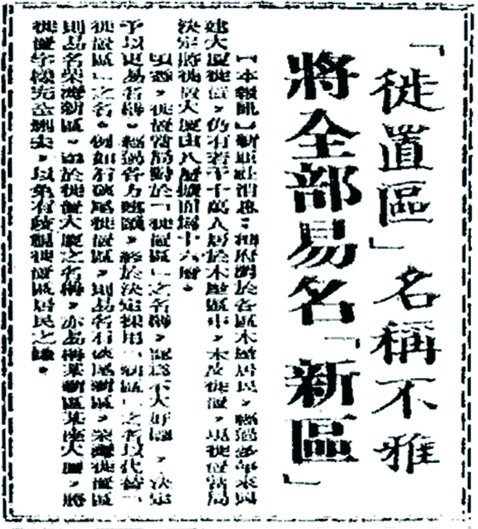 「徙置區」名稱不雅
將全部易名「新區」
【本報訊】新亞社消息,港府對於各區木屋居民,經過多年來
建大廈徙置,仍有若干十萬人居於木屋區中,未及徙置,現徙置當局
決定將徙置大廈由八層擴十六層。
頃悉,徙置當局對於「徙置區」之名稱,認為不大好聽,決定
予以更易名稱,經過各方建議,終於決定採用「新區」之名以代替「
徙置區」之名。例如石硤尾徙置區,則易名石硤尾新區,柴灣徙置區
則易名柴灣新區,至於徙置大廈之名稱,亦易稱某新區某座大廈,將
徙置字樣完全刪去,以免有歧視徙置區居民之嫌。